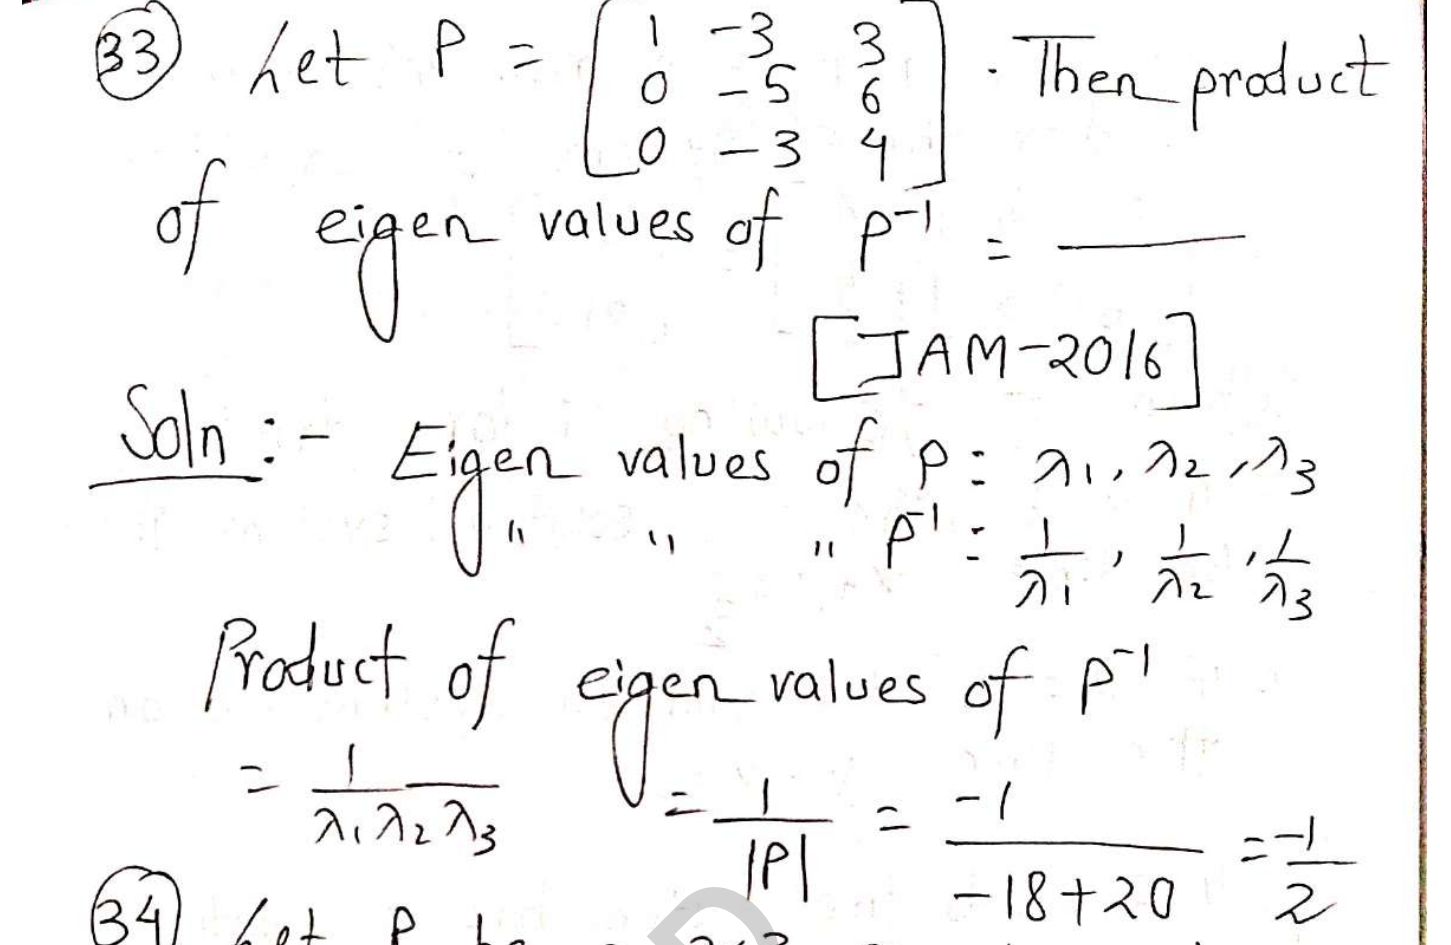 33 Let P = [ 1 -3 3
0 -5 6
0 -3 4 ] . Then product
of eigen values of P⁻¹ = ____
[JAM-2016]
Soln :- Eigen values of P : λ1, λ2, λ3
" " " P⁻¹ : 1/λ1, 1/λ2, 1/λ3
Product of eigen values of P⁻¹
= 1/λ1 λ2 λ3 = 1/|P| = -1/-18+20 = -1/2
34 Let P be